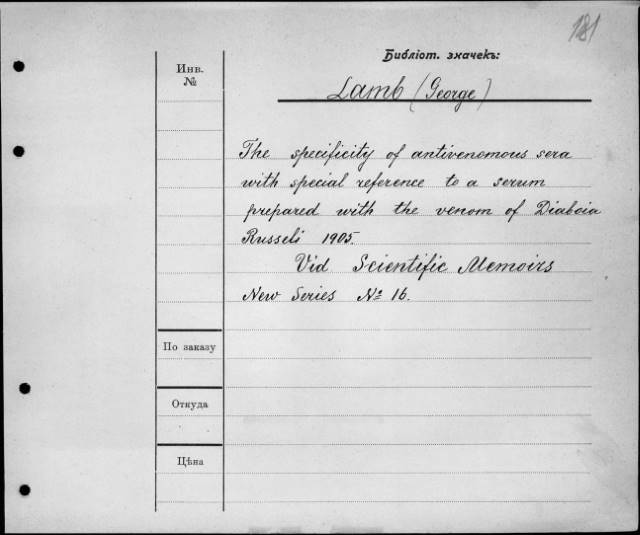 181
Библіот. значекъ:
Инв.
№
Lamb (George)
The specificity of antivenomous sera
with special reference to a serum
prepared with the venom of Diaboia
Russeli 1905.
Vid Scientific Memoirs
New Series № 16.
По заказу
Откуда
Цѣна